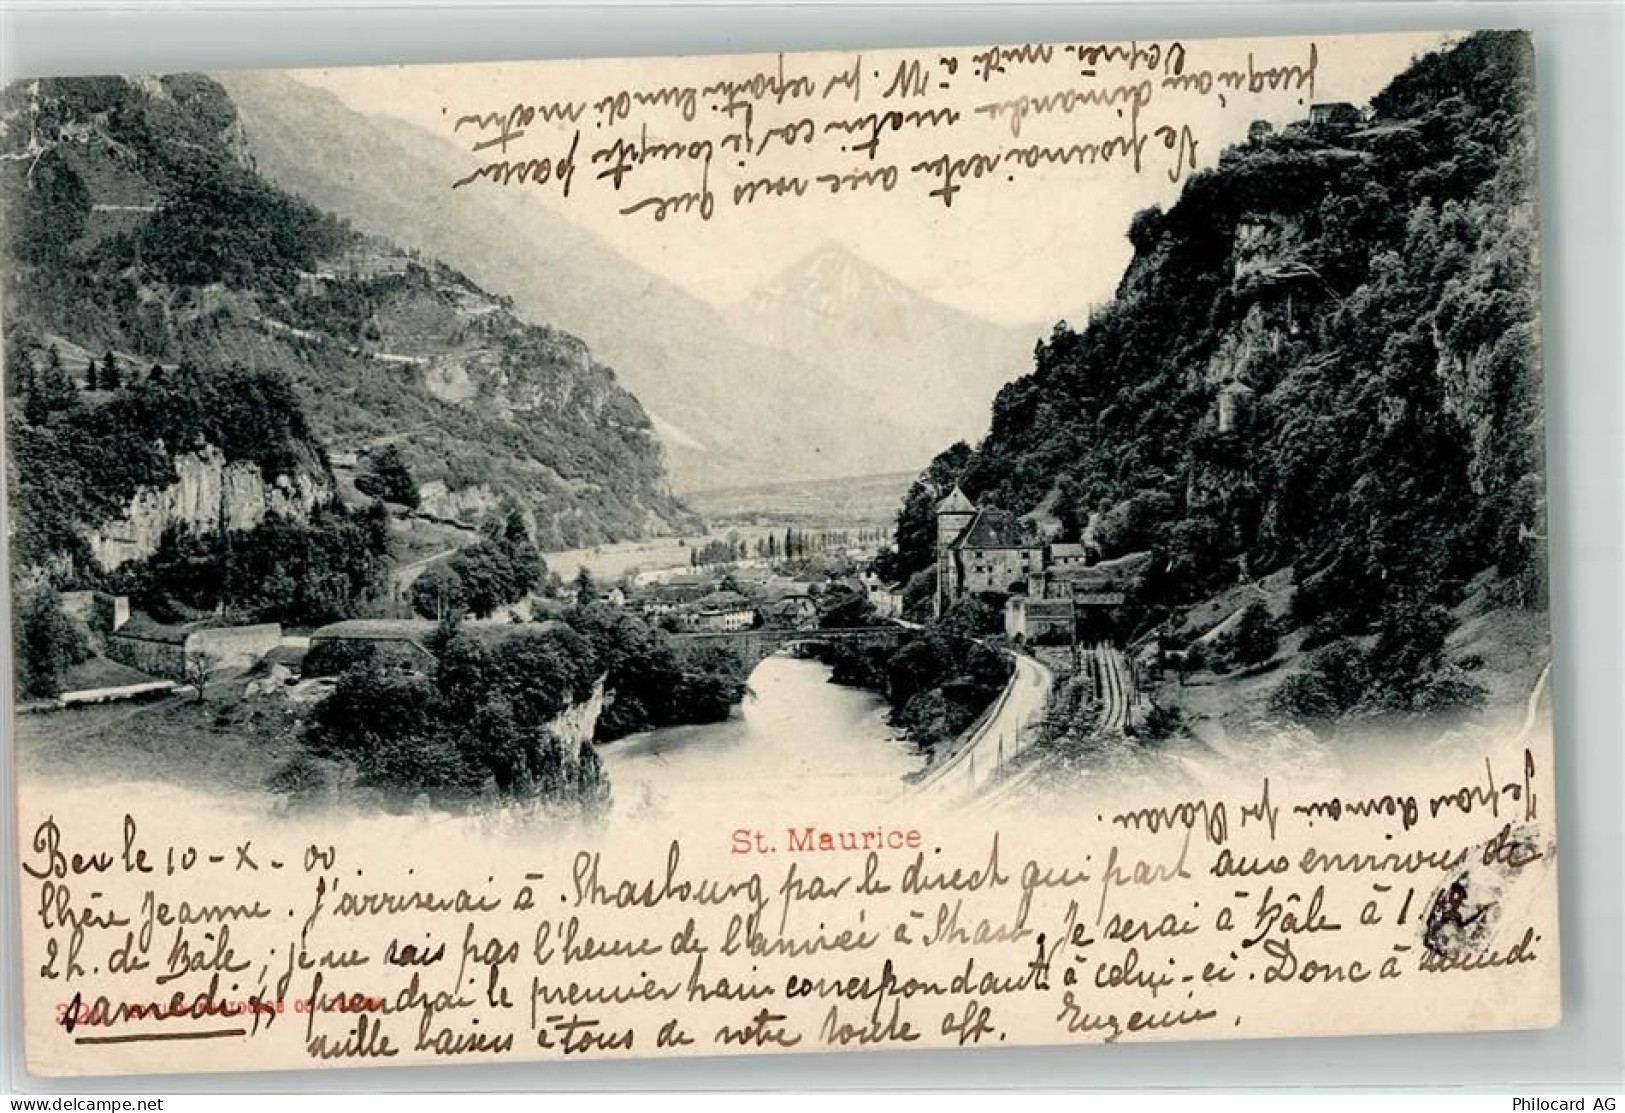 Je pourrai rester avec vous que
jusqu'au dimanche matin car je compte passer
l'après-midi à W. pr repartir lundi matin.
St. Maurice
Je pars demain pr
Bex le 10-X-00
Chère Jeanne. J'arriverai à Strasbourg par le direct qui part aux environs de
2h. de Bâle; je ne sais pas l'heure de l'arrivée à Strasb. Je serai à Bâle à 1.
samedi je prendrai le premier train correspondant à celui-ci. Donc à samedi
mille baisers à tous de votre toute aff. Eugénie.
Philocard AG